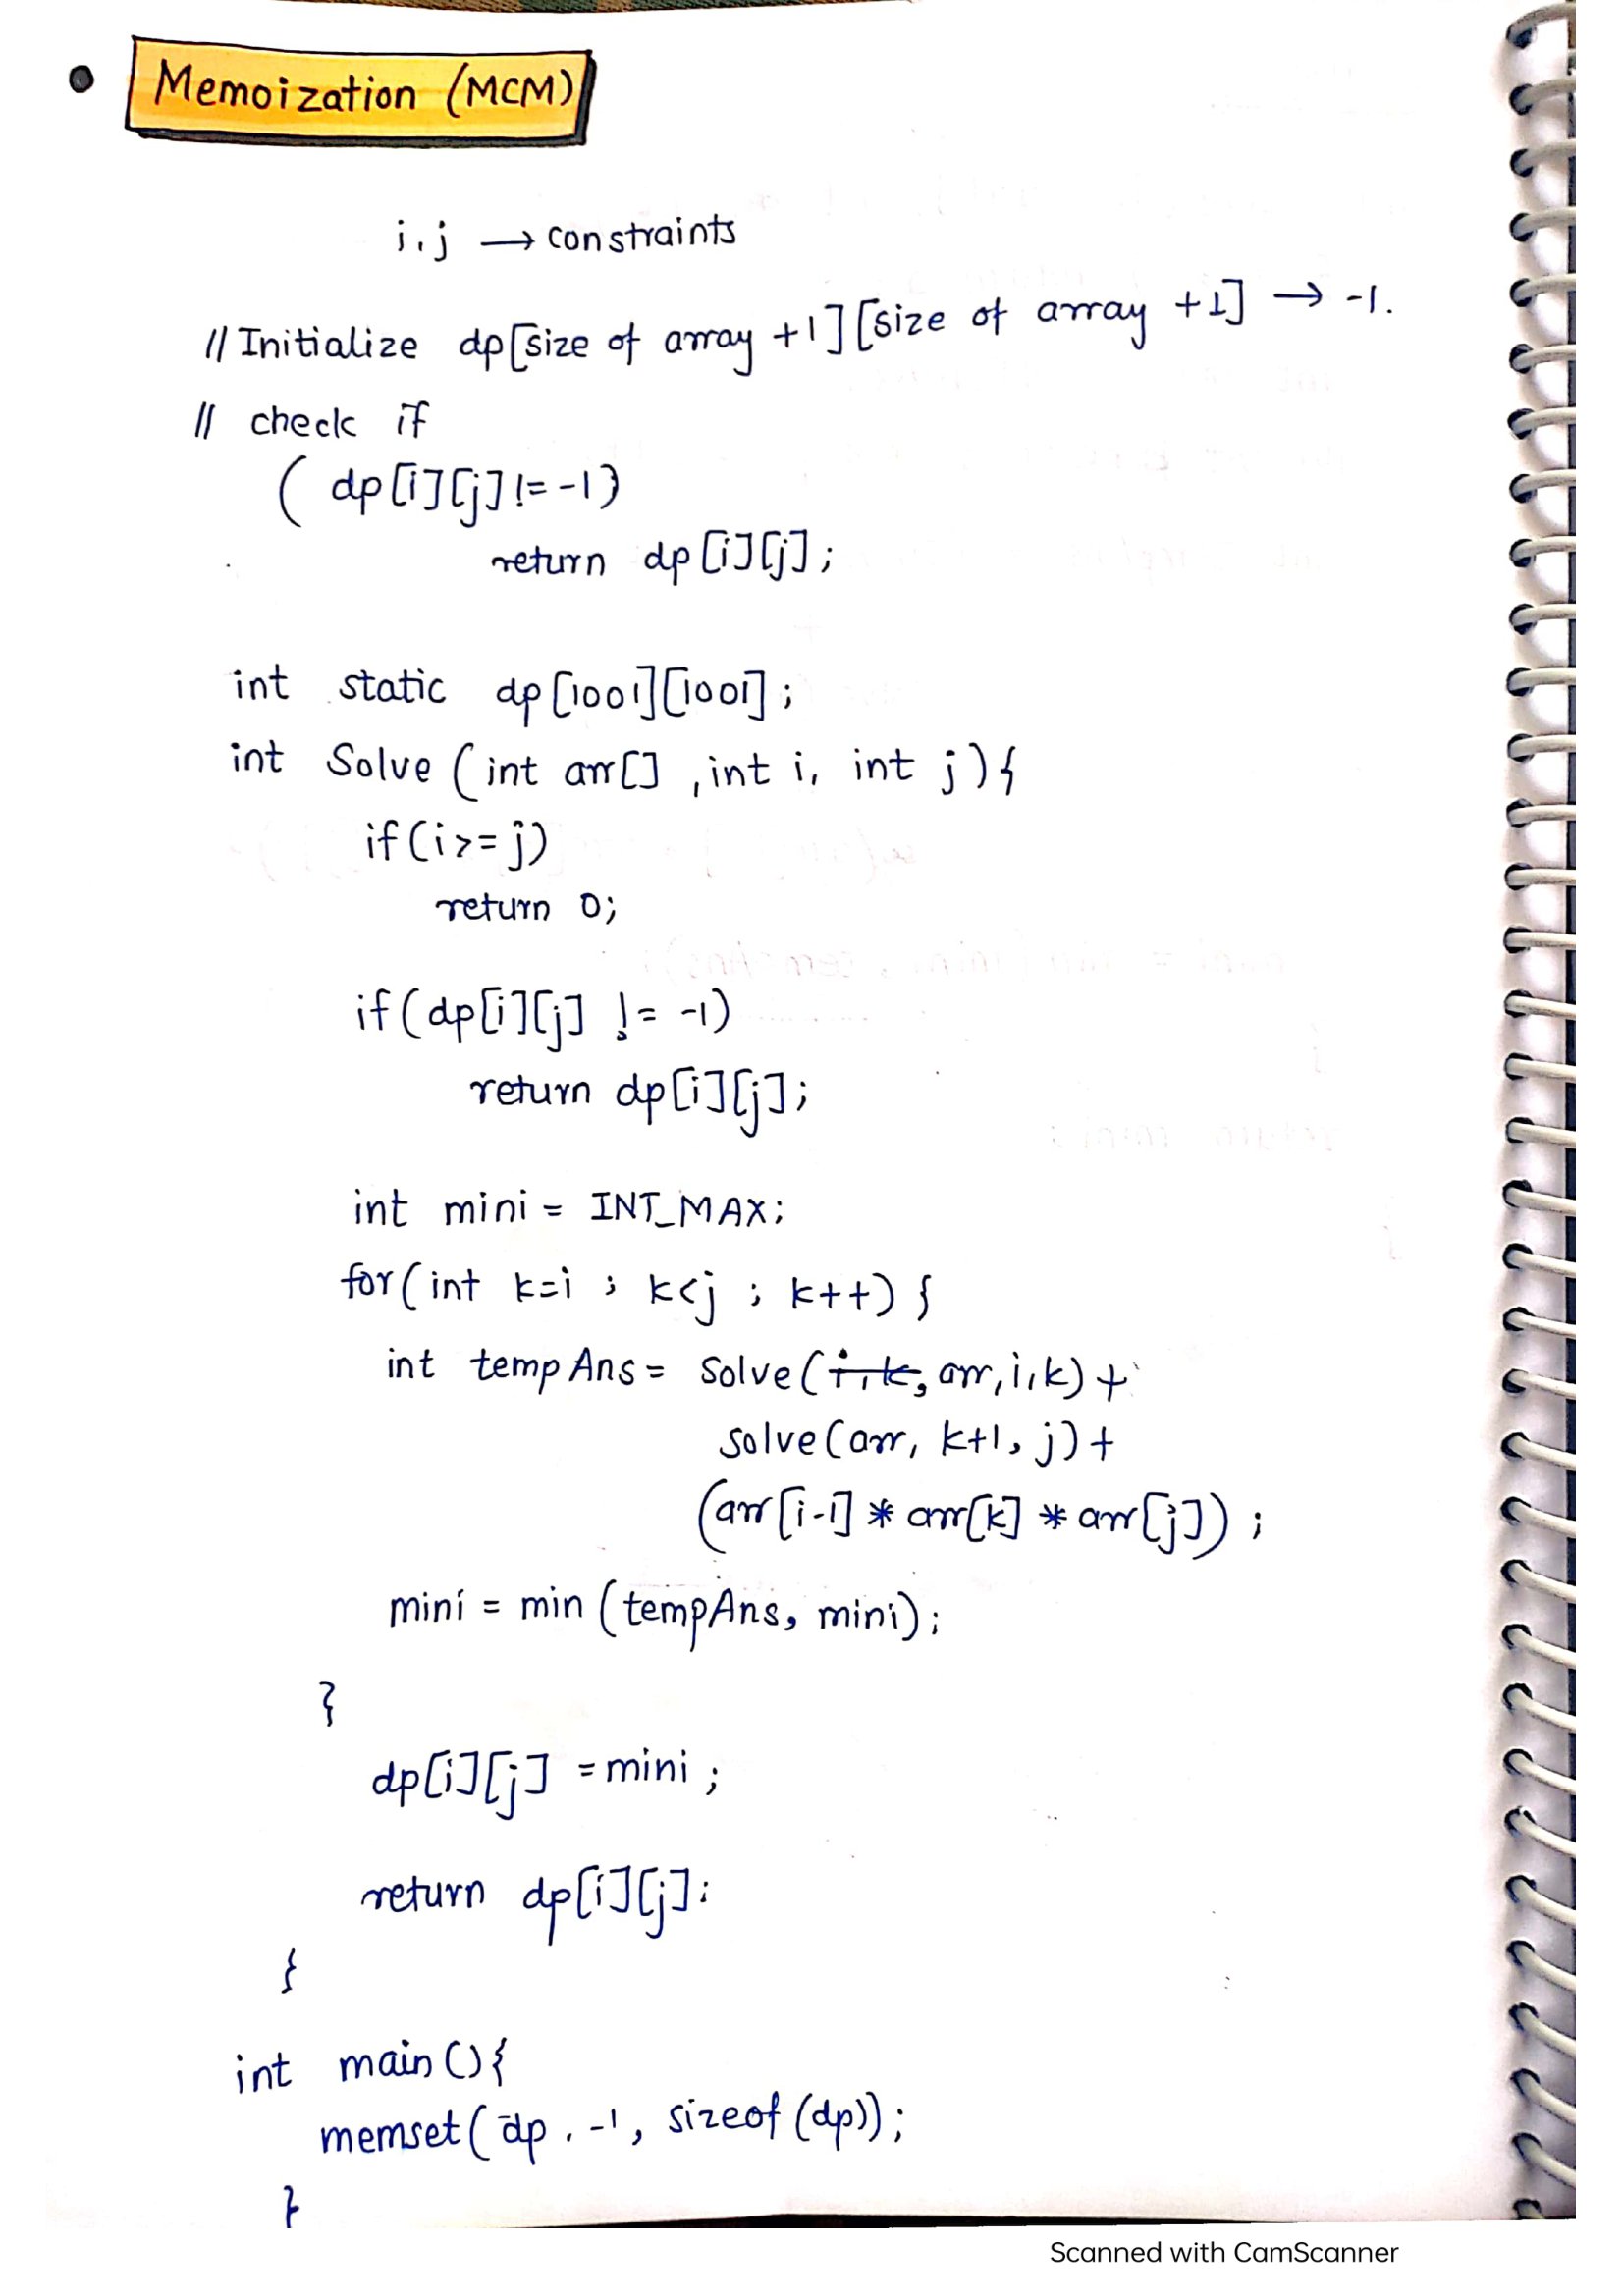 Memoization (MCM)
i, j → constraints
// Initialize dp[size of array +1][size of array +1] → -1.
// check if
( dp[i][j] != -1)
return dp[i][j];
int static dp[1001][1001];
int Solve (int arr[] , int i, int j){
if(i>=j)
return 0;
if(dp[i][j] != -1)
return dp[i][j];
int mini = INT_MAX;
for(int k=i ; k<j ; k++) {
int tempAns = solve(i, k, arr, i, k) +
solve(arr, k+1, j) +
(arr[i-1] * arr[k] * arr[j]) ;
mini = min (tempAns, mini);
}
dp[i][j] = mini ;
return dp[i][j];
}
int main(){
memset( dp , -1, sizeof (dp));
}
Scanned with CamScanner